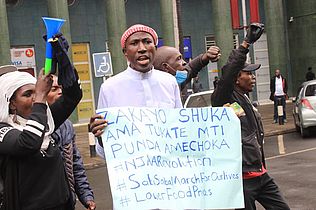 LAKAYO SHUKA
AMA TUKATE MTI
PUNDA AMECHOKA
#NJAARevolution
#SabaSabaMarchForOurLives
#LowerFoodPrices